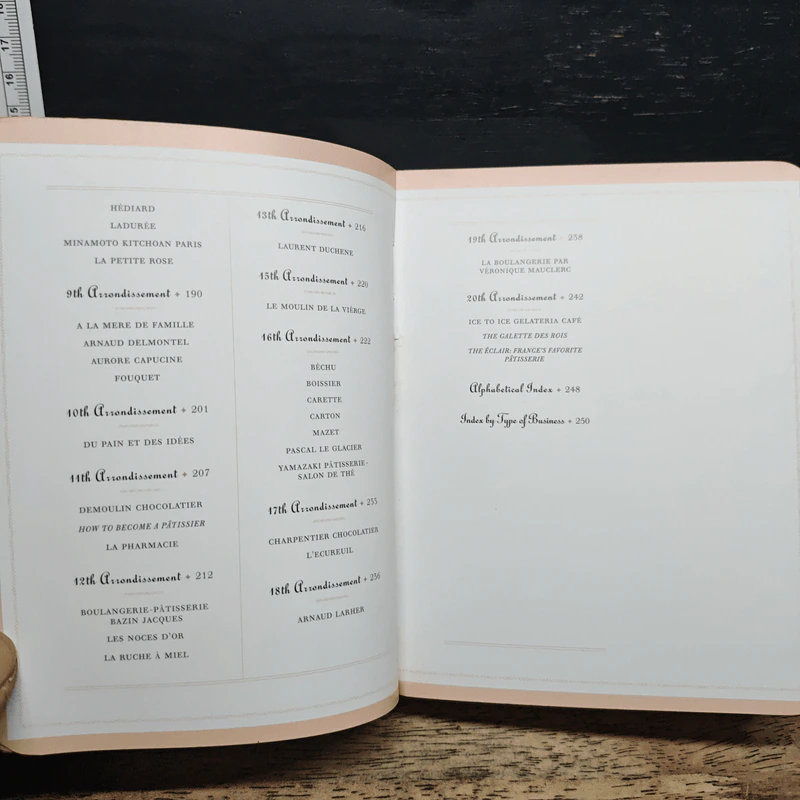 HÉDIARD
LADURÉE
MINAMOTO KITCHOAN PARIS
LA PETITE ROSE
9th Arrondissement + 190
A LA MERE DE FAMILLE
ARNAUD DELMONTEL
AURORE CAPUCINE
FOUQUET
10th Arrondissement + 201
DU PAIN ET DES IDÉES
11th Arrondissement + 207
DEMOULIN CHOCOLATIER
HOW TO BECOME A PÂTISSIER
LA PHARMACIE
12th Arrondissement + 212
BOULANGERIE-PÂTISSERIE
BAZIN JACQUES
LES NOCES D'OR
LA RUCHE À MIEL
13th Arrondissement + 216
LAURENT DUCHENE
15th Arrondissement + 220
LE MOULIN DE LA VIÈRGE
16th Arrondissement + 222
BÉCHU
BOISSIER
CARETTE
CARTON
MAZET
PASCAL LE GLACIER
YAMAZAKI PÂTISSERIE-
SALON DE THÉ
17th Arrondissement + 233
CHARPENTIER CHOCOLATIER
L'ECUREUIL
18th Arrondissement + 236
ARNAUD LARHER
19th Arrondissement + 238
LA BOULANGERIE PAR
VÉRONIQUE MAUCLERC
20th Arrondissement + 242
ICE TO ICE GELATERIA CAFÉ
THE GALETTE DES ROIS
THE ÉCLAIR: FRANCE'S FAVORITE
PÂTISSERIE
Alphabetical Index + 248
Index by Type of Business + 250
18
17
16
15